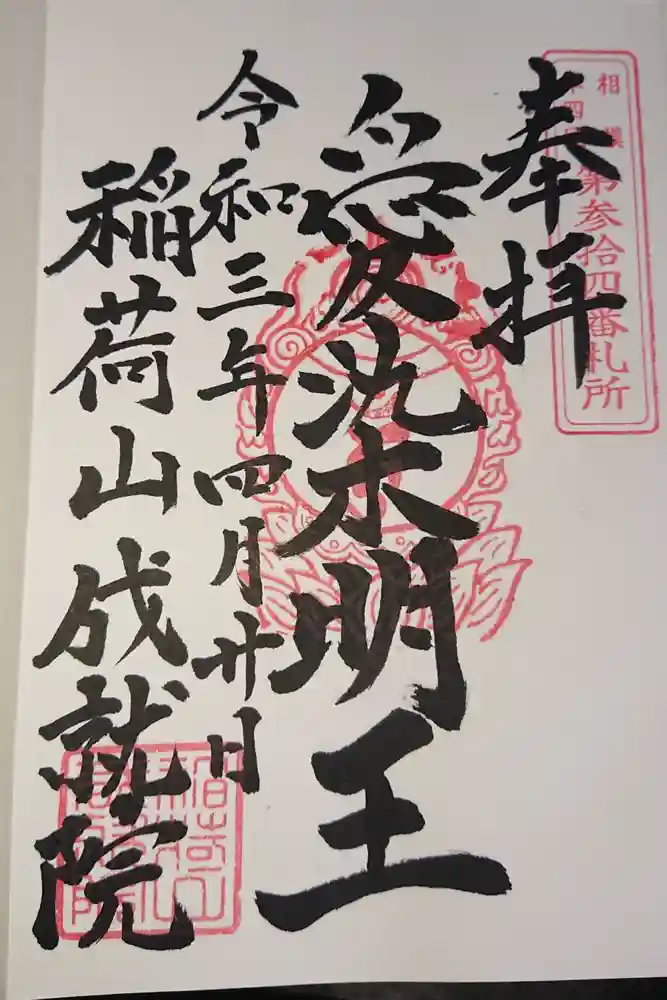 奉拝
相模
第参拾四番札所
愛染明王
令和三年四月廿日
稲荷山成就院